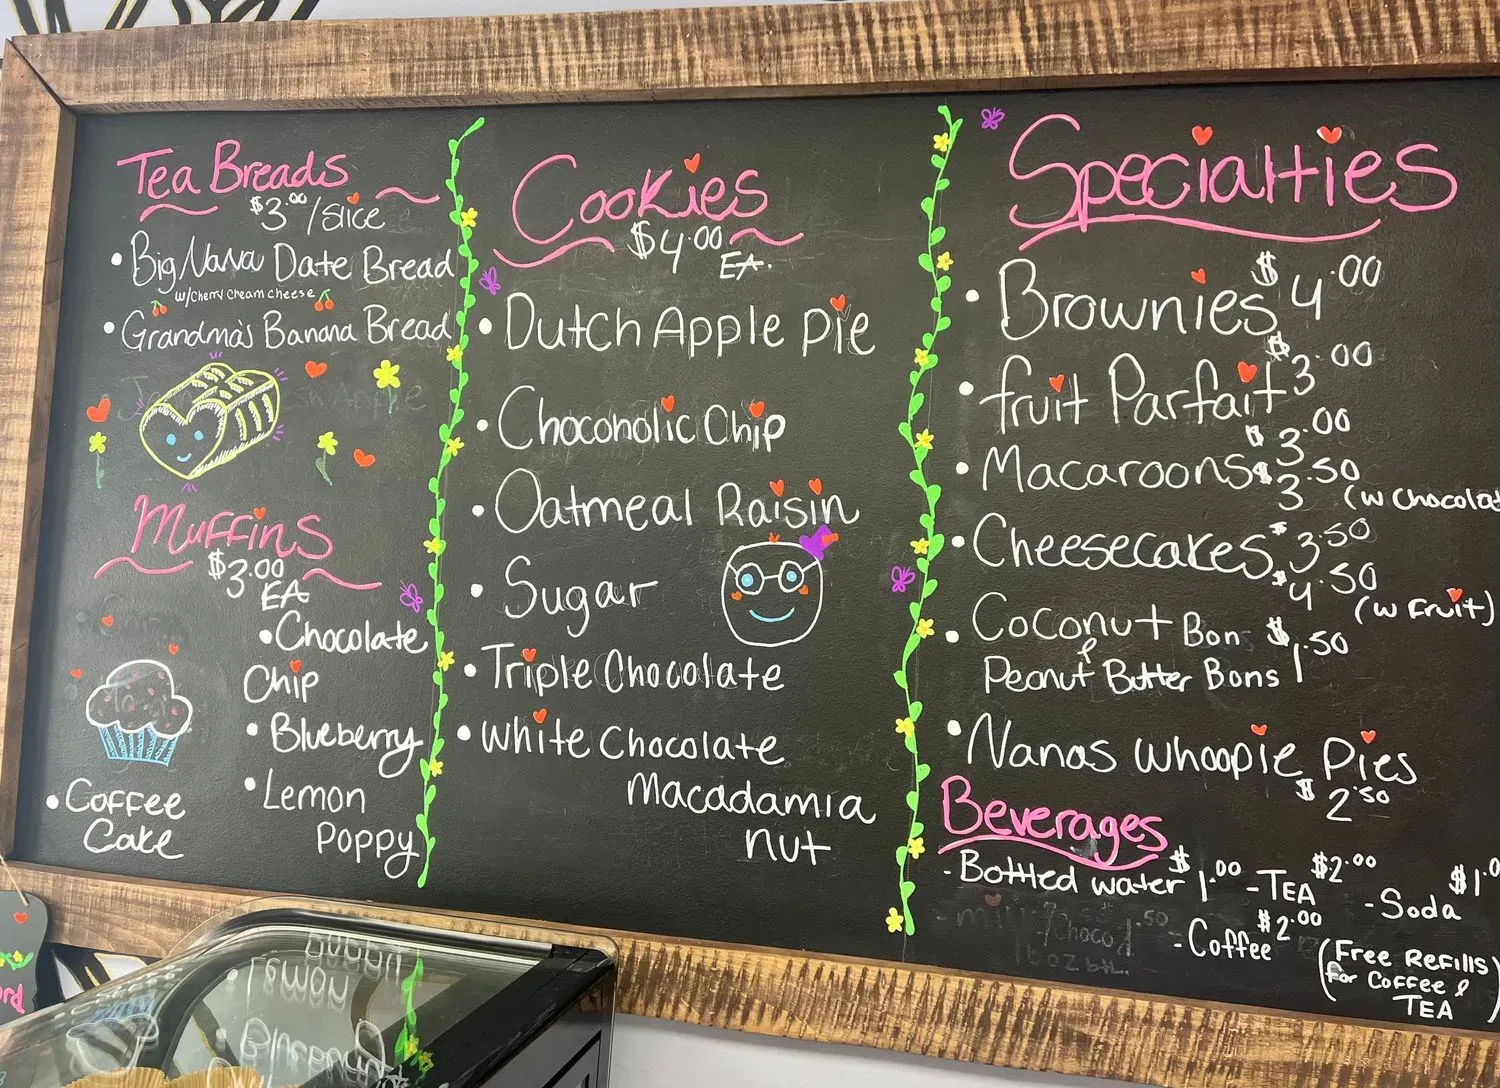 Tea Breads
$3.00/slice
• Big Nana Date Bread
w/cherry cream cheese
• Grandma's Banana Bread
Muffins
$3.00
EA
• Chocolate
Chip
• Blueberry
• Lemon
Poppy
• Coffee
Cake
Cookies
$4.00
EA.
• Dutch Apple Pie
• Chocoholic Chip
• Oatmeal Raisin
• Sugar
• Triple Chocolate
• White Chocolate
Macadamia
nut
Specialties
• Brownies $4.00
• fruit Parfait $3.00
• Macaroons $3.00
$3.50 (w Chocolat
• Cheesecakes $3.50
$4.50 (w Fruit)
• Coconut Bon $1.50
&
Peanut Butter Bons
• Nanas Whoopie Pies
$2.50
Beverages
- Bottled water $1.00 - Tea $2.00 - Soda $1.0
- Coffee $2.00
(Free Refills
for Coffee &
Tea)
16 oz btl.
Lemon
Poppy
Blueberry